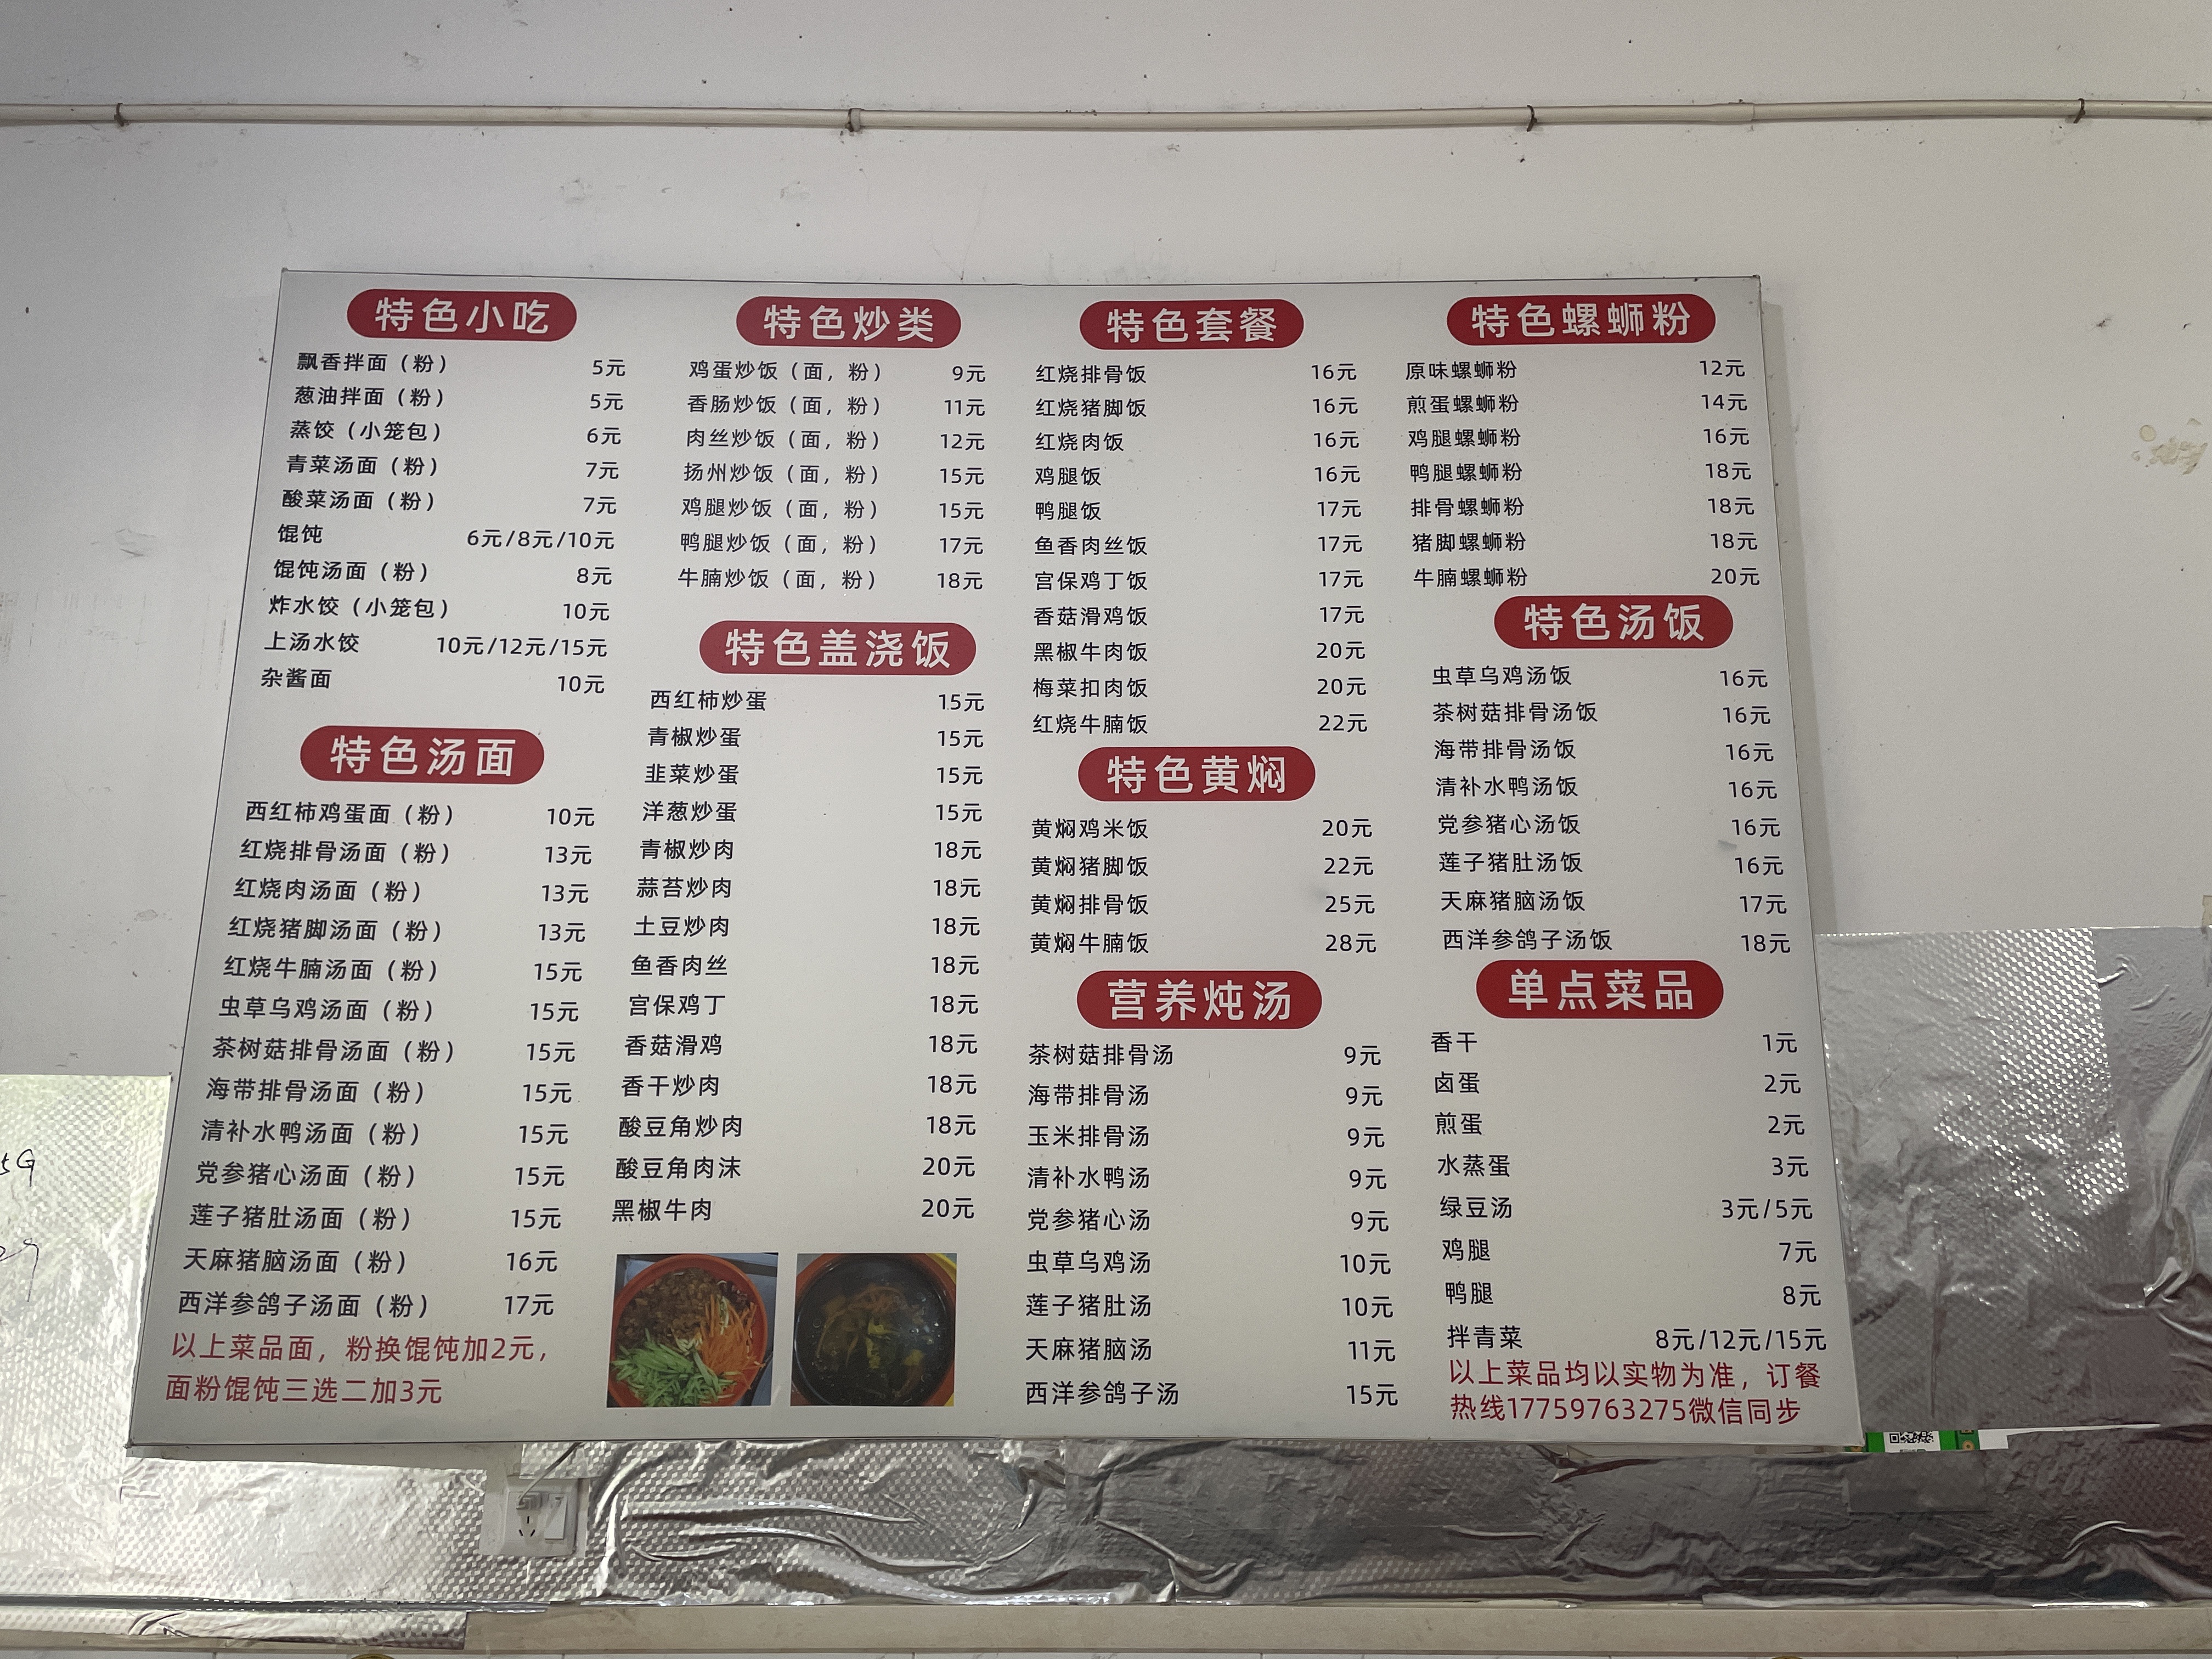 特色小吃
飘香拌面（粉） 5元
葱油拌面（粉） 5元
蒸饺（小笼包） 6元
青菜汤面（粉） 7元
酸菜汤面（粉） 7元
馄饨 6元/8元/10元
馄饨汤面（粉） 8元
炸水饺（小笼包） 10元
上汤水饺 10元/12元/15元
杂酱面 10元
特色汤面
西红柿鸡蛋面（粉） 10元
红烧排骨汤面（粉） 13元
红烧肉汤面（粉） 13元
红烧猪脚汤面（粉） 13元
红烧牛腩汤面（粉） 15元
虫草乌鸡汤面（粉） 15元
茶树菇排骨汤面（粉） 15元
海带排骨汤面（粉） 15元
清补水鸭汤面（粉） 15元
党参猪心汤面（粉） 15元
莲子猪肚汤面（粉） 15元
天麻猪脑汤面（粉） 16元
西洋参鸽子汤面（粉） 17元
以上菜品面，粉换馄饨加2元，
面粉馄饨三选二加3元
特色炒类
鸡蛋炒饭（面，粉） 9元
香肠炒饭（面，粉） 11元
肉丝炒饭（面，粉） 12元
扬州炒饭（面，粉） 15元
鸡腿炒饭（面，粉） 15元
鸭腿炒饭（面，粉） 17元
牛腩炒饭（面，粉） 18元
特色盖浇饭
西红柿炒蛋 15元
青椒炒蛋 15元
韭菜炒蛋 15元
洋葱炒蛋 15元
青椒炒肉 18元
蒜苔炒肉 18元
土豆炒肉 18元
鱼香肉丝 18元
宫保鸡丁 18元
香菇滑鸡 18元
香干炒肉 18元
酸豆角炒肉 18元
酸豆角肉沫 20元
黑椒牛肉 20元
特色套餐
红烧排骨饭 16元
红烧猪脚饭 16元
红烧肉饭 16元
鸡腿饭 16元
鸭腿饭 17元
鱼香肉丝饭 17元
宫保鸡丁饭 17元
香菇滑鸡饭 17元
黑椒牛肉饭 20元
梅菜扣肉饭 20元
红烧牛腩饭 22元
特色黄焖
黄焖鸡米饭 20元
黄焖猪脚饭 22元
黄焖排骨饭 25元
黄焖牛腩饭 28元
营养炖汤
茶树菇排骨汤 9元
海带排骨汤 9元
玉米排骨汤 9元
清补水鸭汤 9元
党参猪心汤 9元
虫草乌鸡汤 10元
莲子猪肚汤 10元
天麻猪脑汤 11元
西洋参鸽子汤 15元
特色螺蛳粉
原味螺蛳粉 12元
煎蛋螺蛳粉 14元
鸡腿螺蛳粉 16元
鸭腿螺蛳粉 18元
排骨螺蛳粉 18元
猪脚螺蛳粉 18元
牛腩螺蛳粉 20元
特色汤饭
虫草乌鸡汤饭 16元
茶树菇排骨汤饭 16元
海带排骨汤饭 16元
清补水鸭汤饭 16元
党参猪心汤饭 16元
莲子猪肚汤饭 16元
天麻猪脑汤饭 17元
西洋参鸽子汤饭 18元
单点菜品
香干 1元
卤蛋 2元
煎蛋 2元
水蒸蛋 3元
绿豆汤 3元/5元
鸡腿 7元
鸭腿 8元
拌青菜 8元/12元/15元
以上菜品均以实物为准，订餐
热线17759763275微信同步